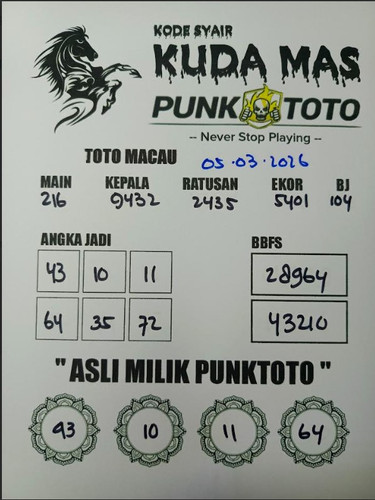 KODE SYAIR
KUDA MAS
PUNK TOTO
-- Never Stop Playing --
TOTO MACAU 05.03.2026
MAIN KEPALA RATUSAN EKOR BJ
216 9432 2435 5401 104
ANGKA JADI BBFS
43 10 11 28964
64 35 72 43210
" ASLI MILIK PUNKTOTO "
93 10 11 64